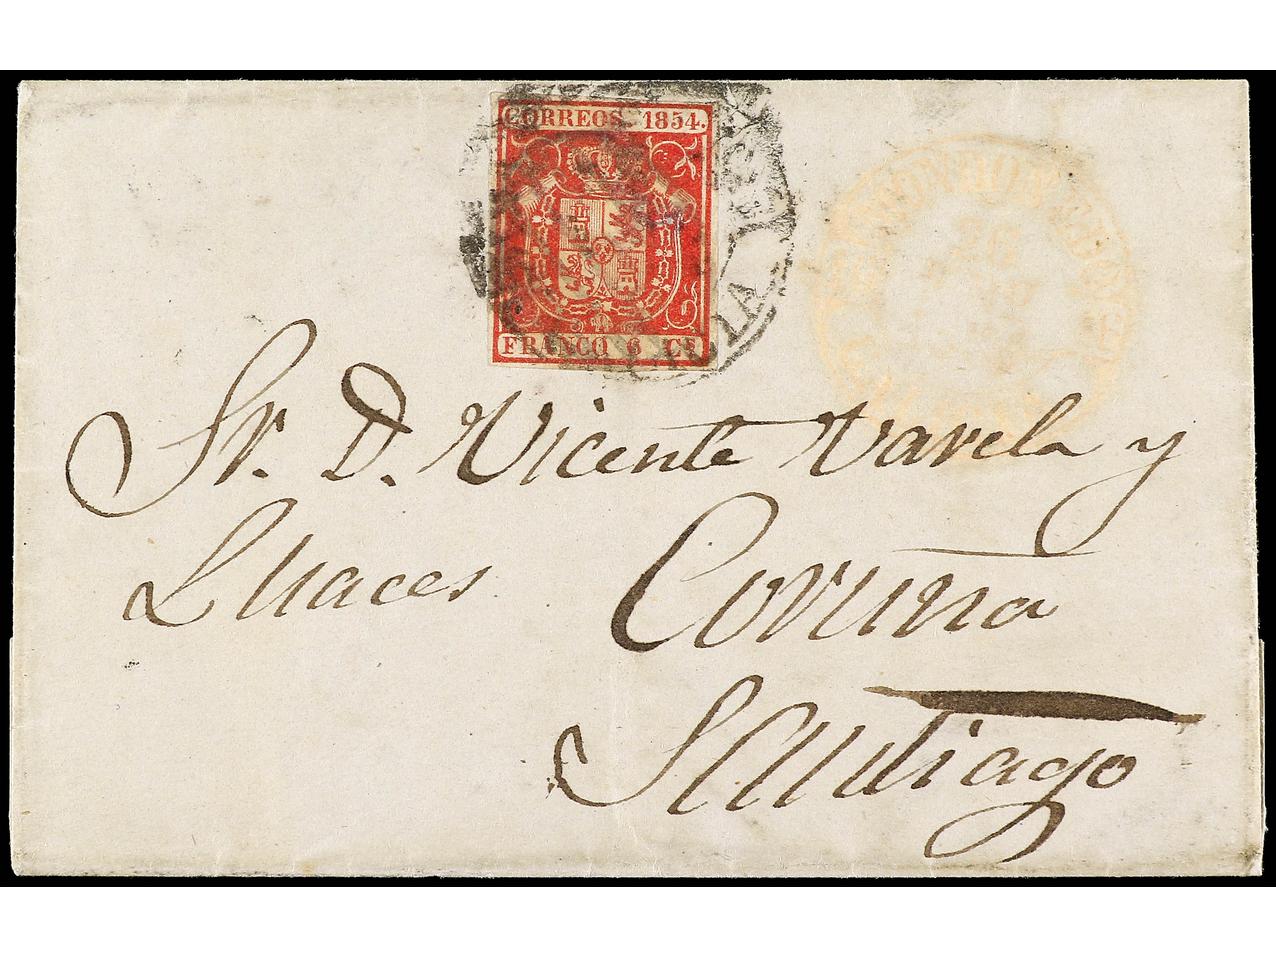 CORREOS. 1854.
FRANCO 6 Cs
26
Sr. D. Vicente Varela y
Luaces
Coruña
Santiago